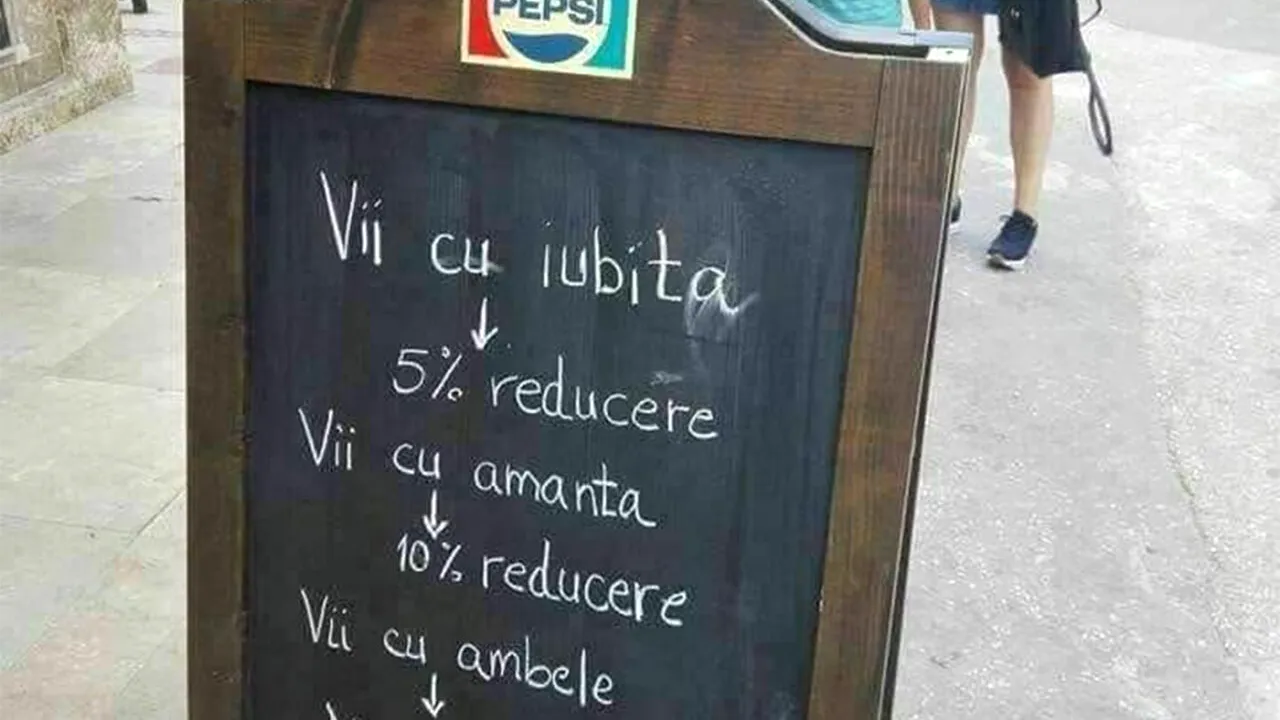 PEPSI
Vii cu iubita
↓
5% reducere
Vii cu amanta
↓
10% reducere
Vii cu ambele
↓